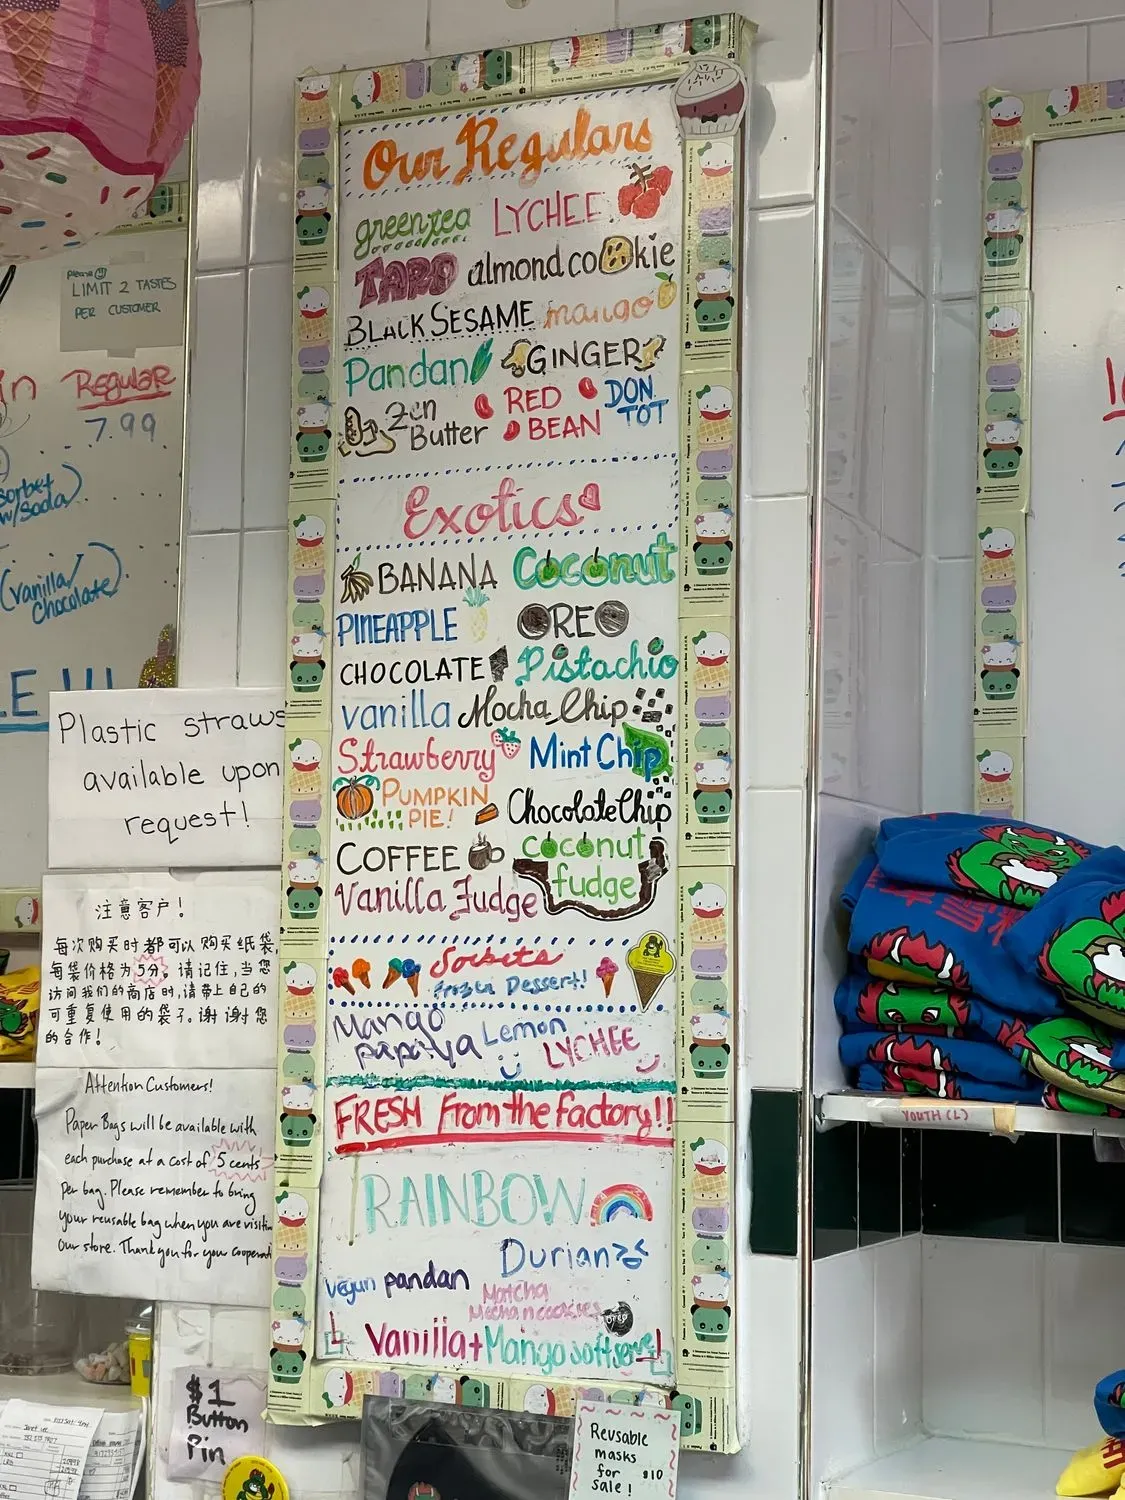 Our Regulars
green tea LYCHEE
TARO almond cookie
BLACK SESAME mango
Pandan GINGER
Zen Butter RED BEAN DON TOT
Exotics
BANANA Coconut
PINEAPPLE OREO
CHOCOLATE Pistachio
vanilla Mocha Chip
Strawberry Mint Chip
PUMPKIN PIE! Chocolate Chip
COFFEE coconut fudge
Vanilla Fudge
Sorbets
Frozen Dessert!
Mango papaya Lemon LYCHEE
FRESH From the factory!!
RAINBOW
Durian
vegan pandan
Matcha
Vanilla + Mango soft serve!
Please
LIMIT 2 TASTES
PER CUSTOMER
Regular
7.99
sorbet
w/soda)
(vanilla/
chocolate)
E !!!
Plastic straws
available upon
request!
注意客户!
每次购买时都可以购买纸袋,
每袋价格为5分. 请记住,当您
访问我们的商店时,请带上自己的
可重复使用的袋子.谢谢您
的合作!
Attention Customers!
Paper Bags will be available with
each purchase at a cost of 5 cents
per bag. Please remember to bring
your reusable bag when you are
our store. Thank you for your
$1
Button
Pin
Reusable
masks
for $10
sale!
YOUTH (L)